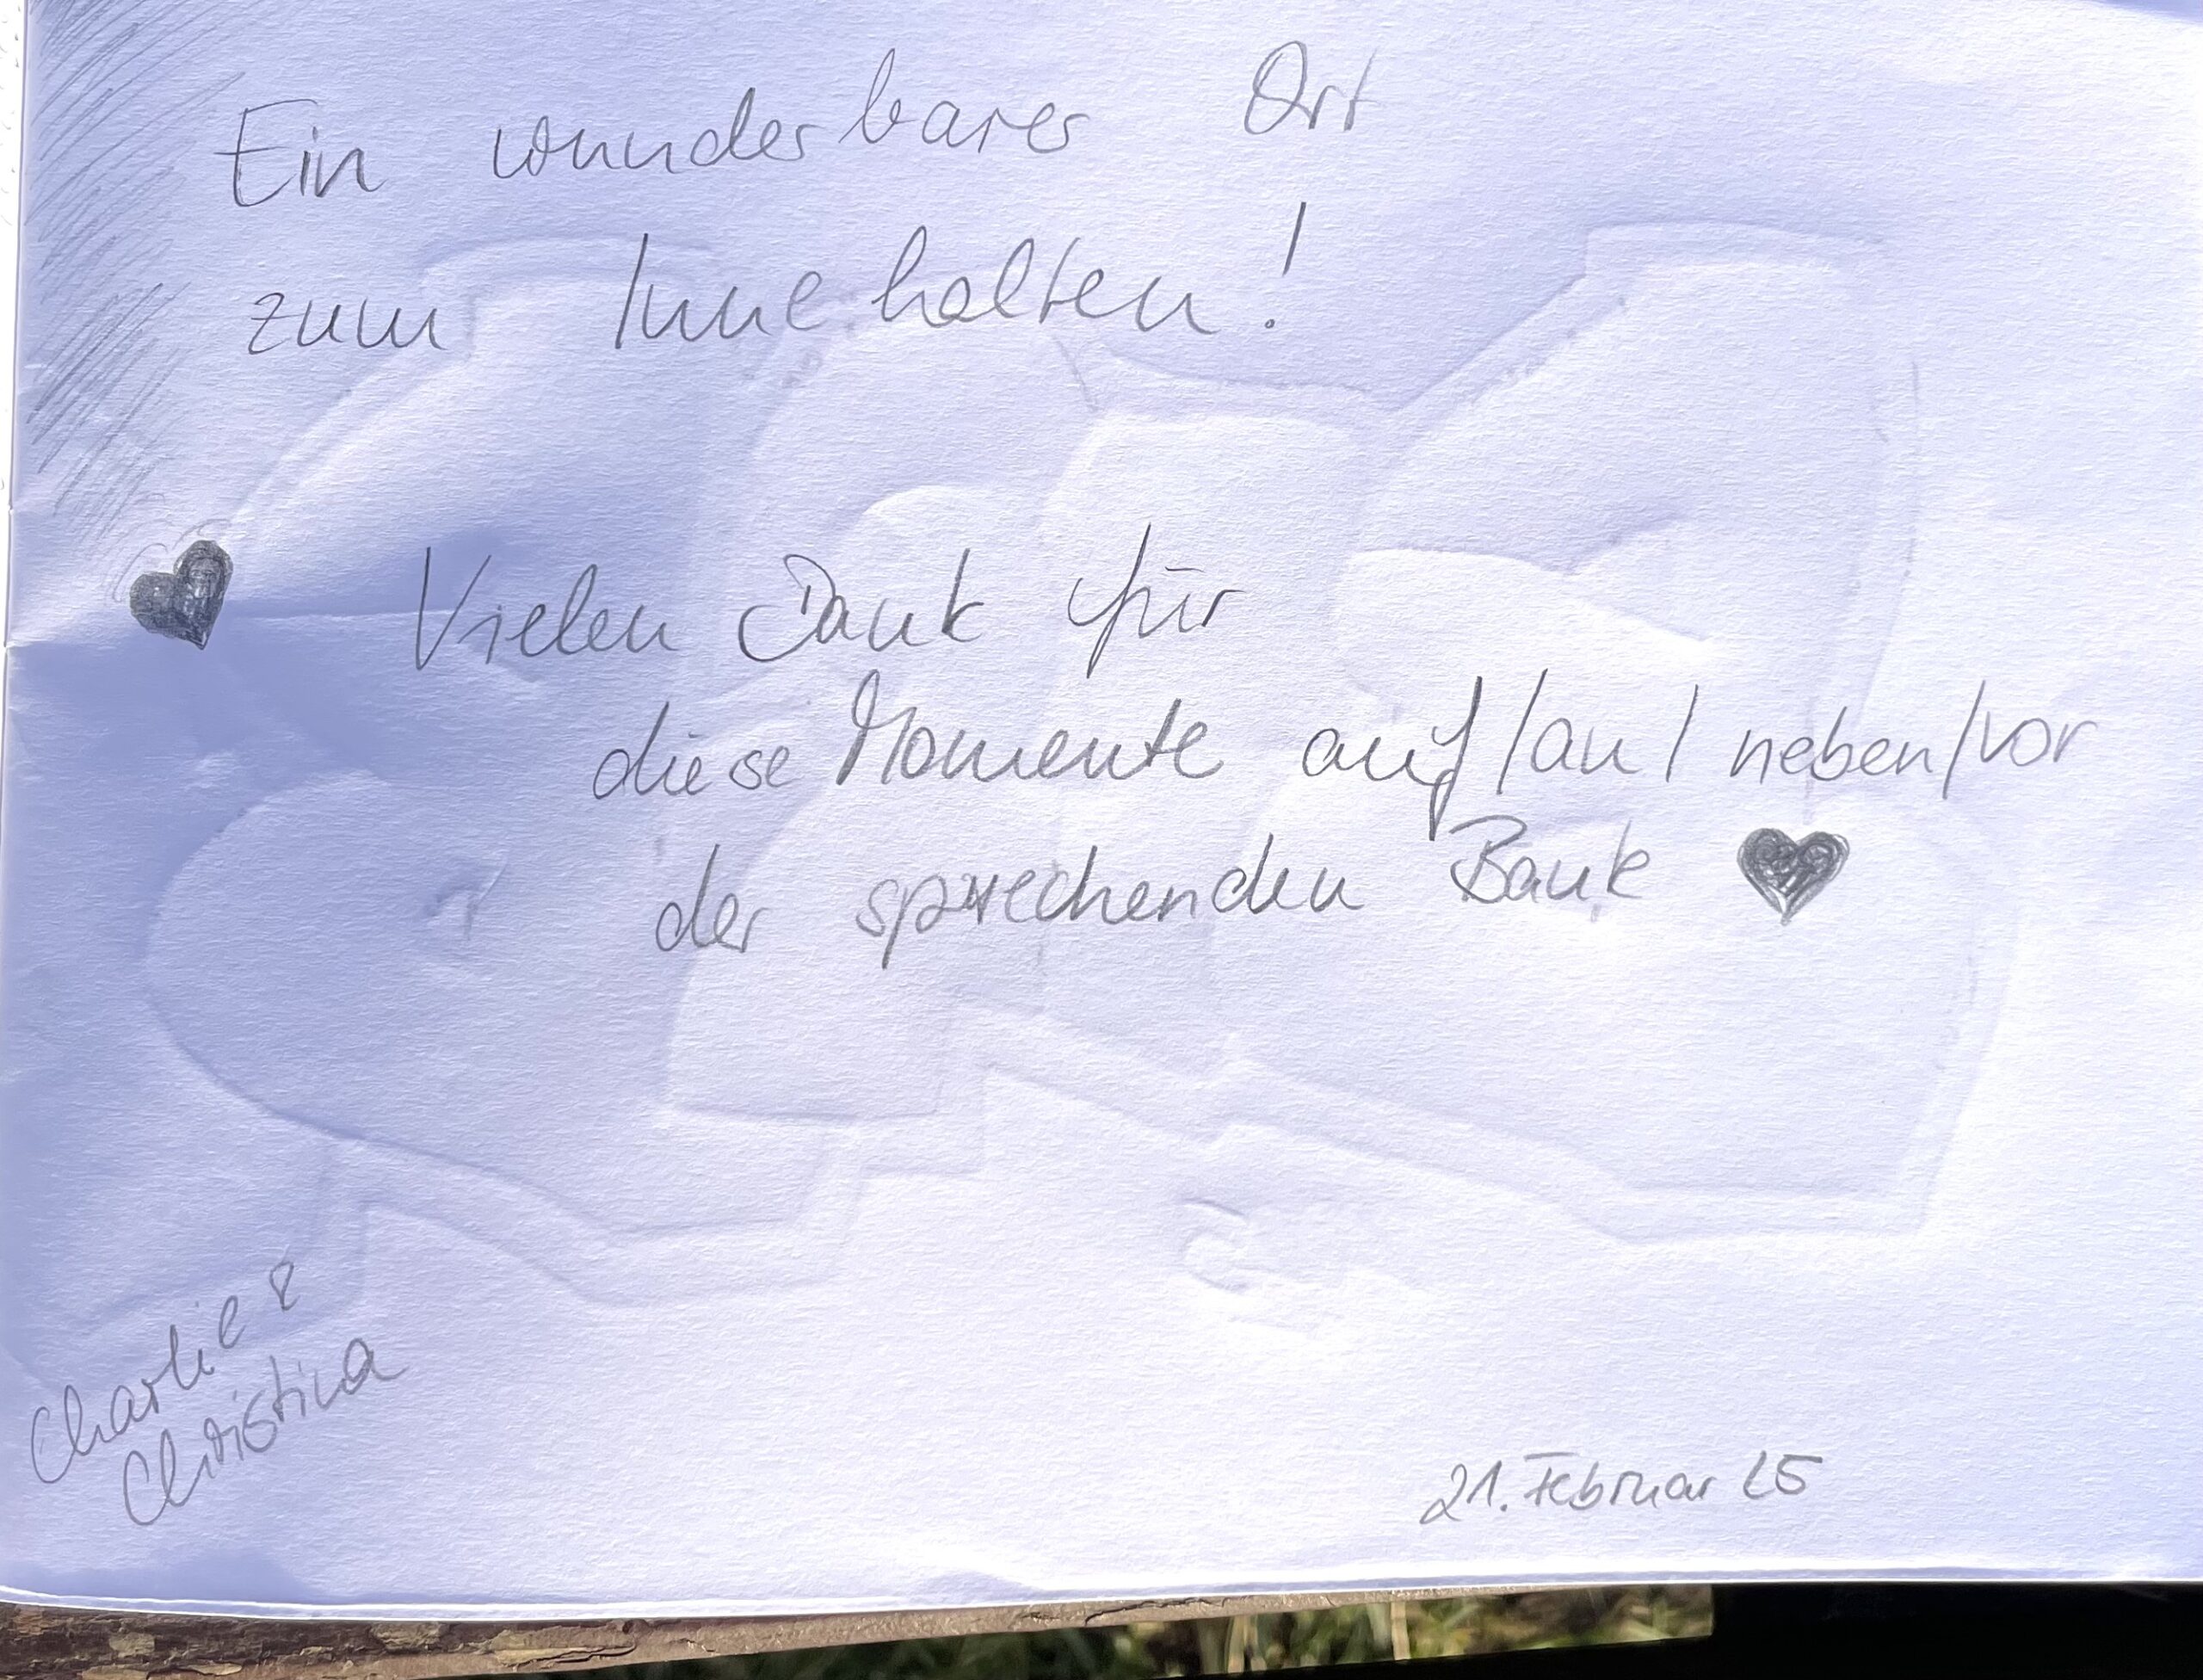 Ein wunderbarer Ort
zum Innehalten!
Vielen Dank für
diese Momente auf/an/neben/vor
der sprechenden Bank ♥
Charlie &
Christina
21. Februar 25